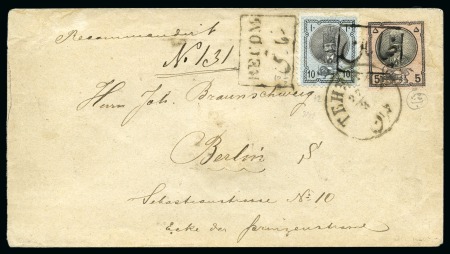 Recommandirt
No 131
RECOM
10 10
5 5
TEHERAN
Herrn Joh. Braunschweig
Berlin S
Sebastianstrasse No 10
Ecke der Prinzenstrasse